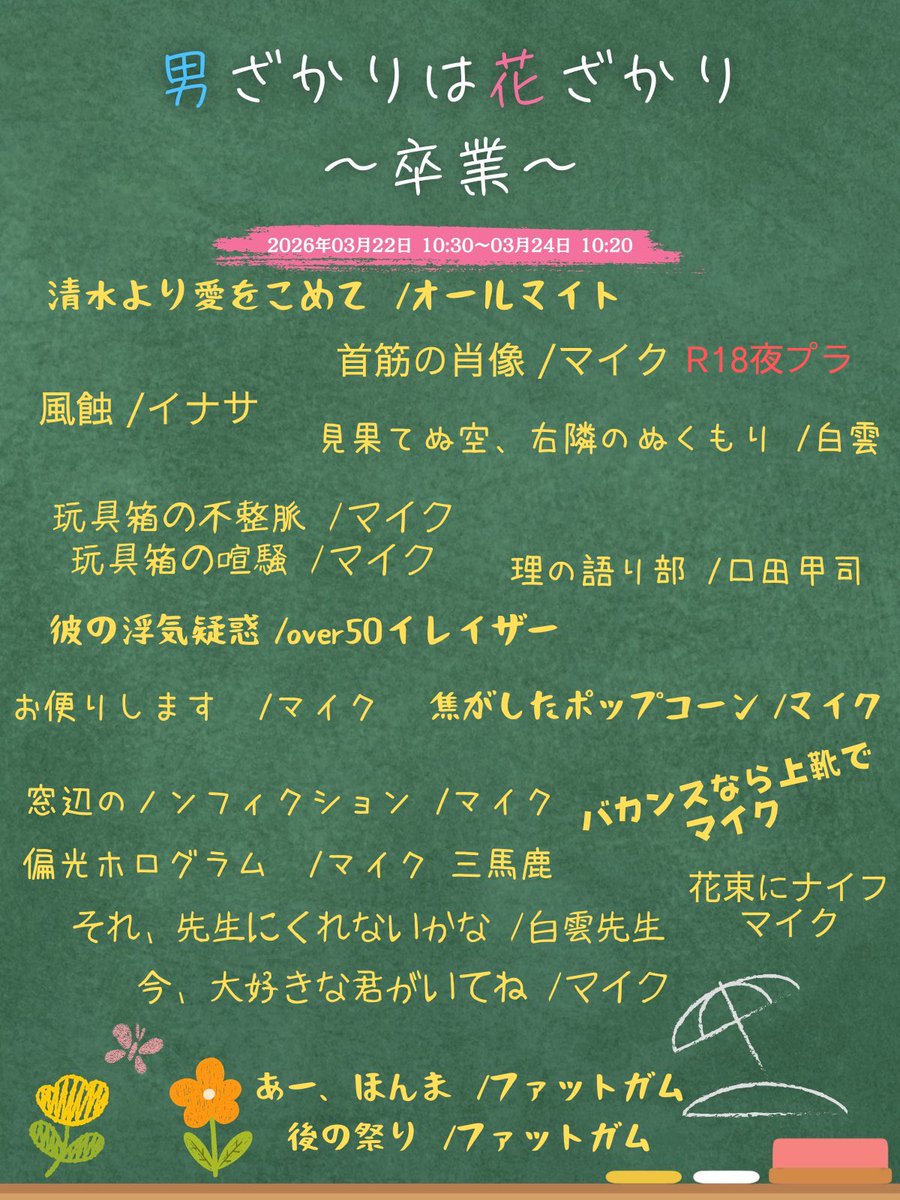 男ざかりは花ざかり
～卒業～
2026年03月22日 10:30～03月24日 10:20
清水より愛をこめて /オールマイト
首筋の肖像 /マイク R18夜プラ
風蝕 /イナサ
見果てぬ空、右隣のぬくもり /白雲
玩具箱の不整脈 /マイク
玩具箱の喧騒 /マイク
理の語り部 /口田甲司
彼の浮気疑惑 /over50イレイザー
お便りします /マイク
焦がしたポップコーン /マイク
窓辺のノンフィクション /マイク
バカンスなら上靴で
マイク
偏光ホログラム /マイク 三馬鹿
花束にナイフ
マイク
それ、先生にくれないかな /白雲先生
今、大好きな君がいてね /マイク
あー、ほんま /ファットガム
後の祭り /ファットガム